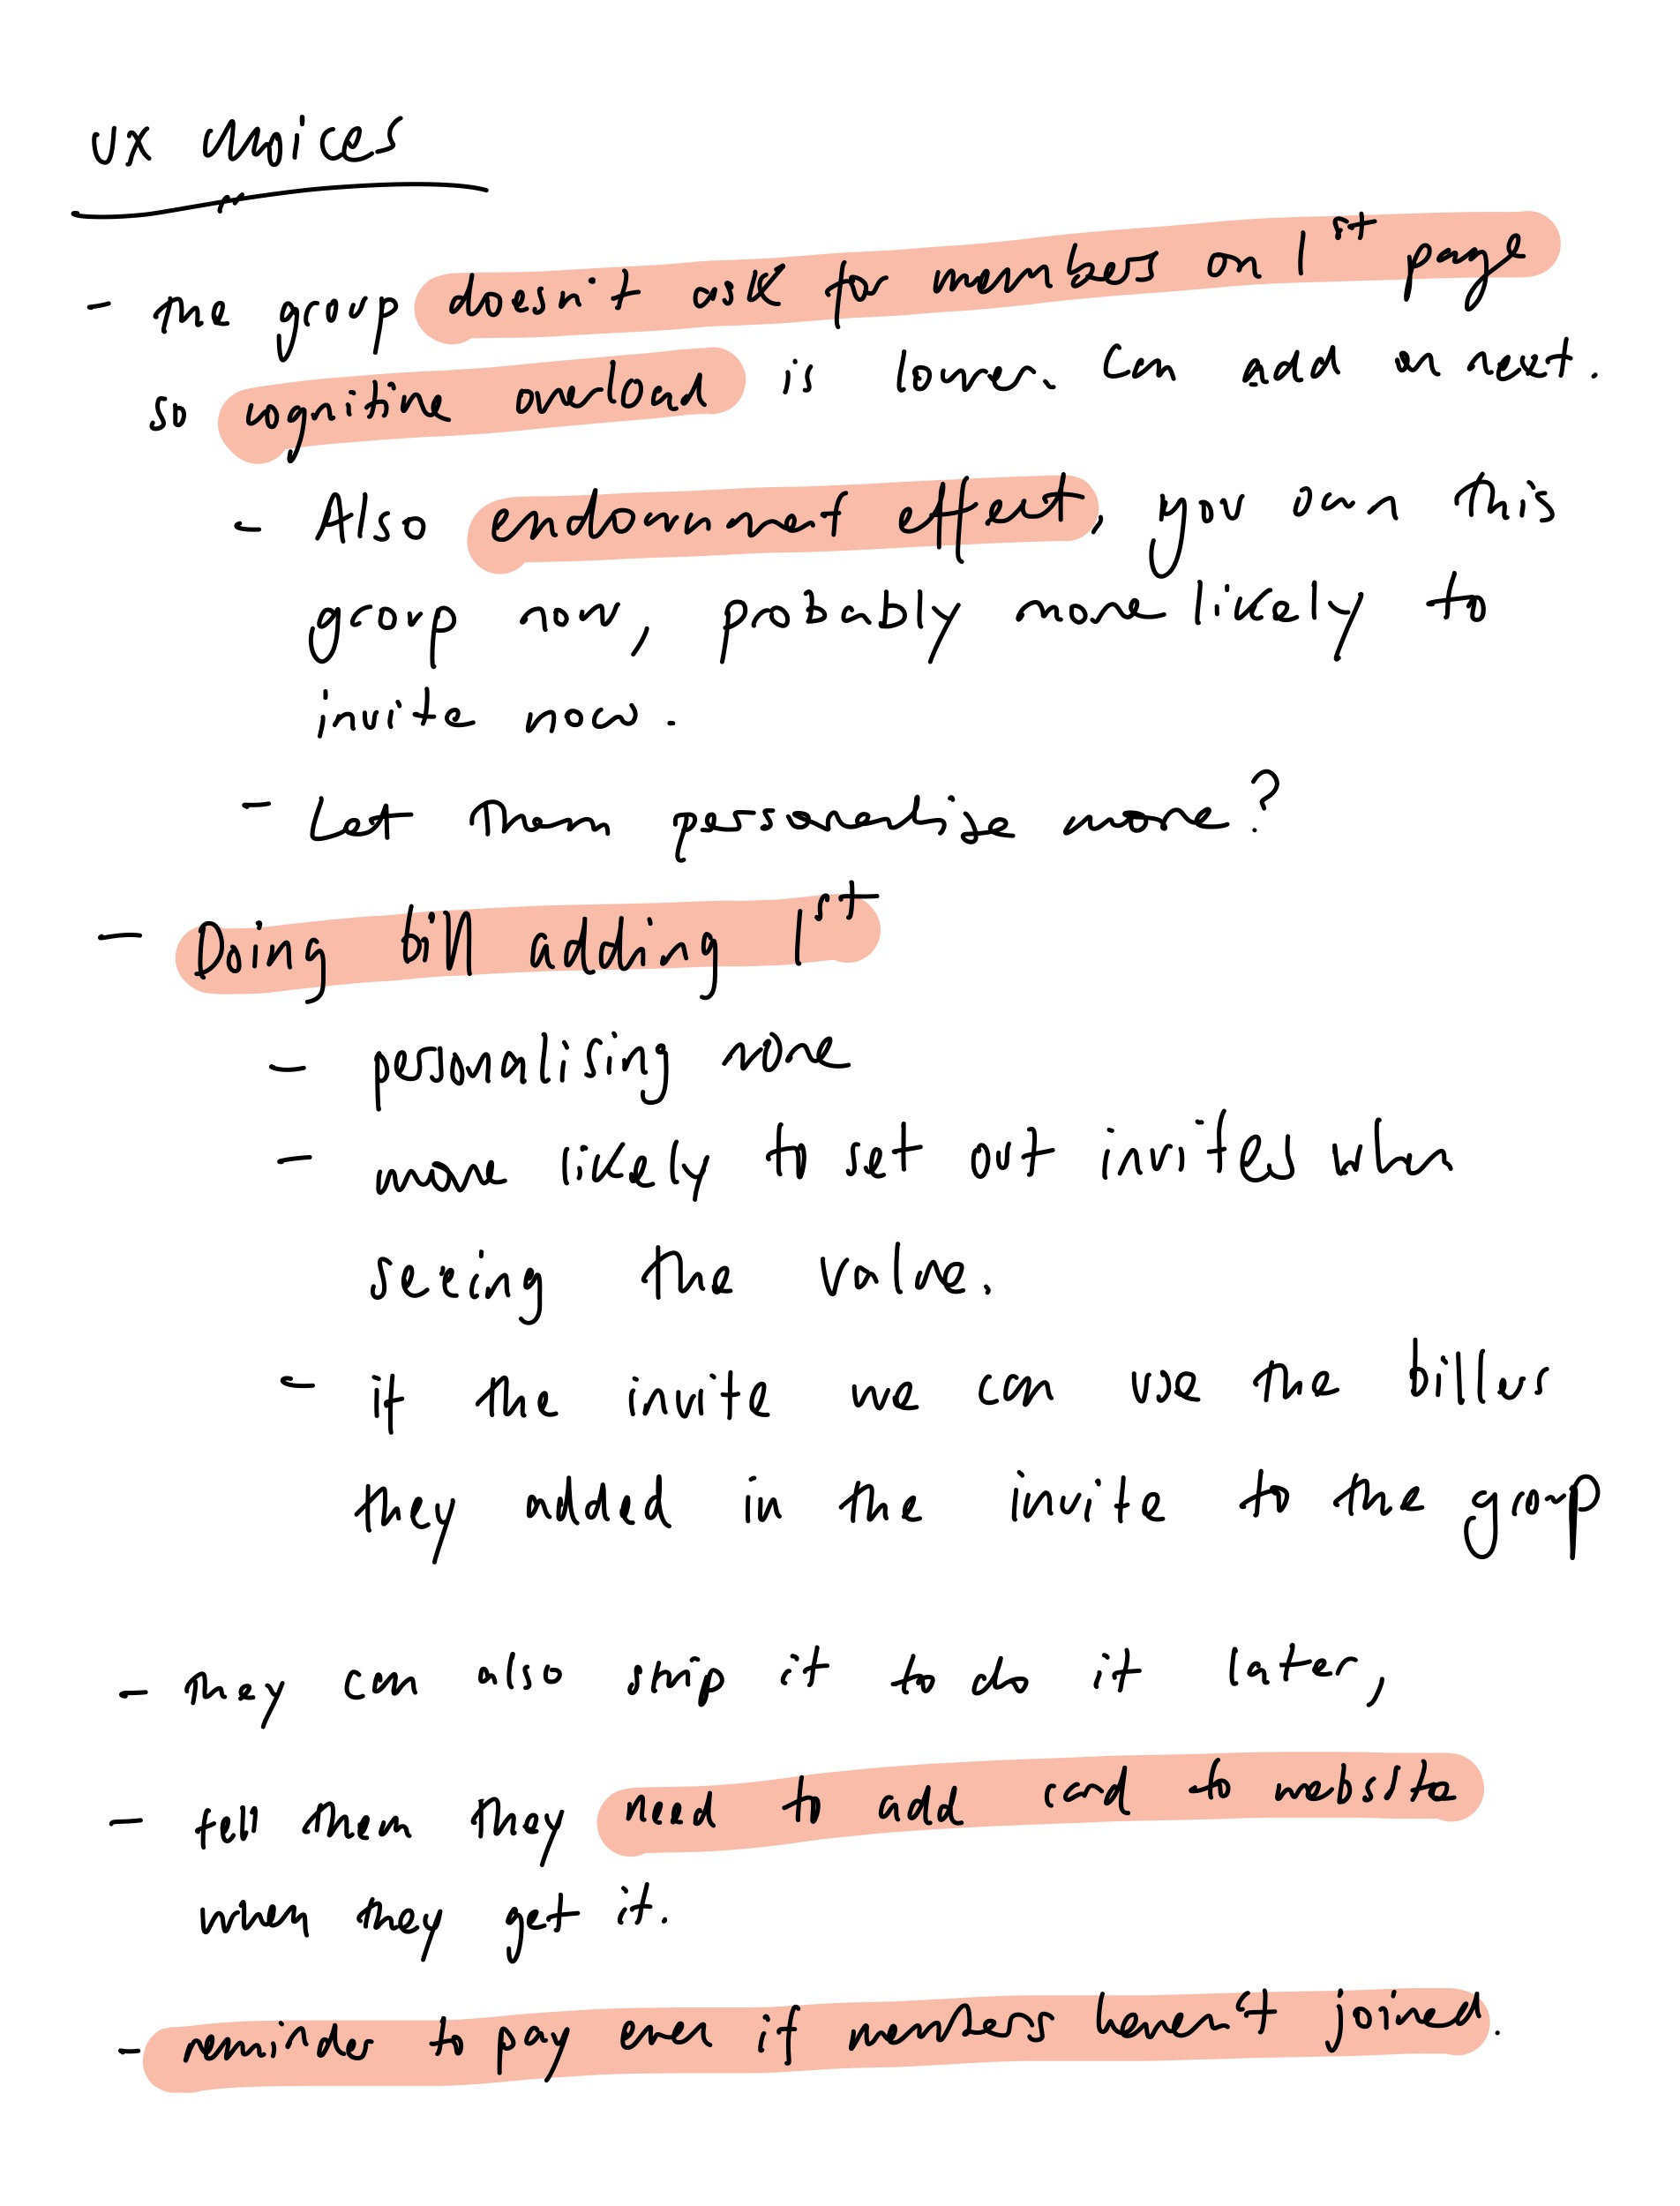 UX choices
- The group doesn't ask for members on 1st page
so cognitive overload is lower. Can add on next.
- Also endowment effect, you own this
group now, probably more likely to
invite now.
- Let them personalise more?
- Doing bill adding 1st
- personalising more
- more likely to set out invites when
seeing the value.
- if the invite we can use the billers
they added in the invite to the group
- They can also skip it to do it later,
- tell them they need to add card to website
when they get it.
- reminder to pay even if members haven't joined.